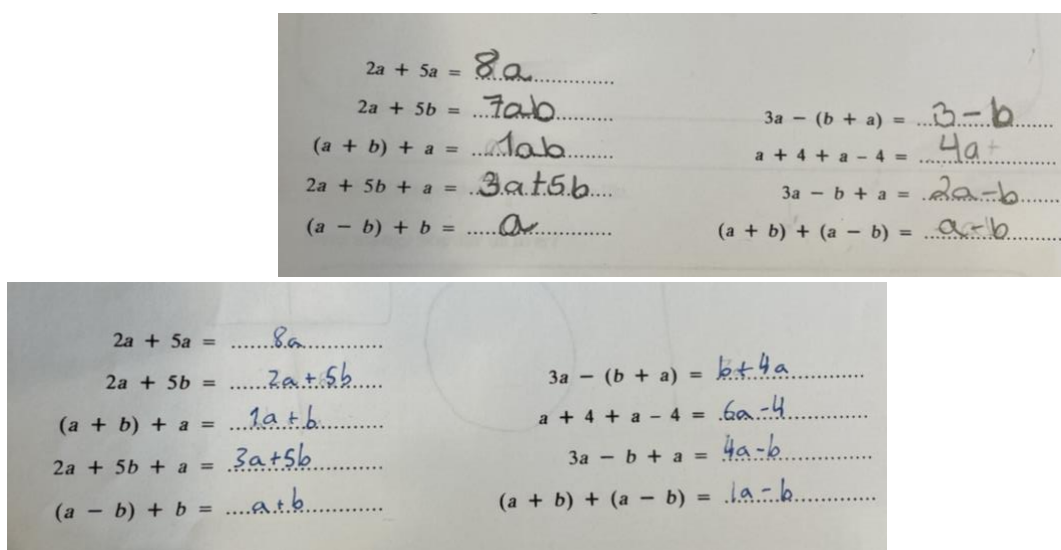 2a + 5a = 8a
2a + 5b = 7ab
(a + b) + a = 1ab
2a + 5b + a = 3a+5b
(a − b) + b = a
3a − (b + a) = 3−b
a + 4 + a − 4 = 4a
3a − b + a = 2a−b
(a + b) + (a − b) = a−b
2a + 5a = 8a
2a + 5b = 2a+5b
(a + b) + a = 1a+b
2a + 5b + a = 3a+5b
(a − b) + b = a+b
3a − (b + a) = b+4a
a + 4 + a − 4 = 6a−4
3a − b + a = 4a−b
(a + b) + (a − b) = 1a−b